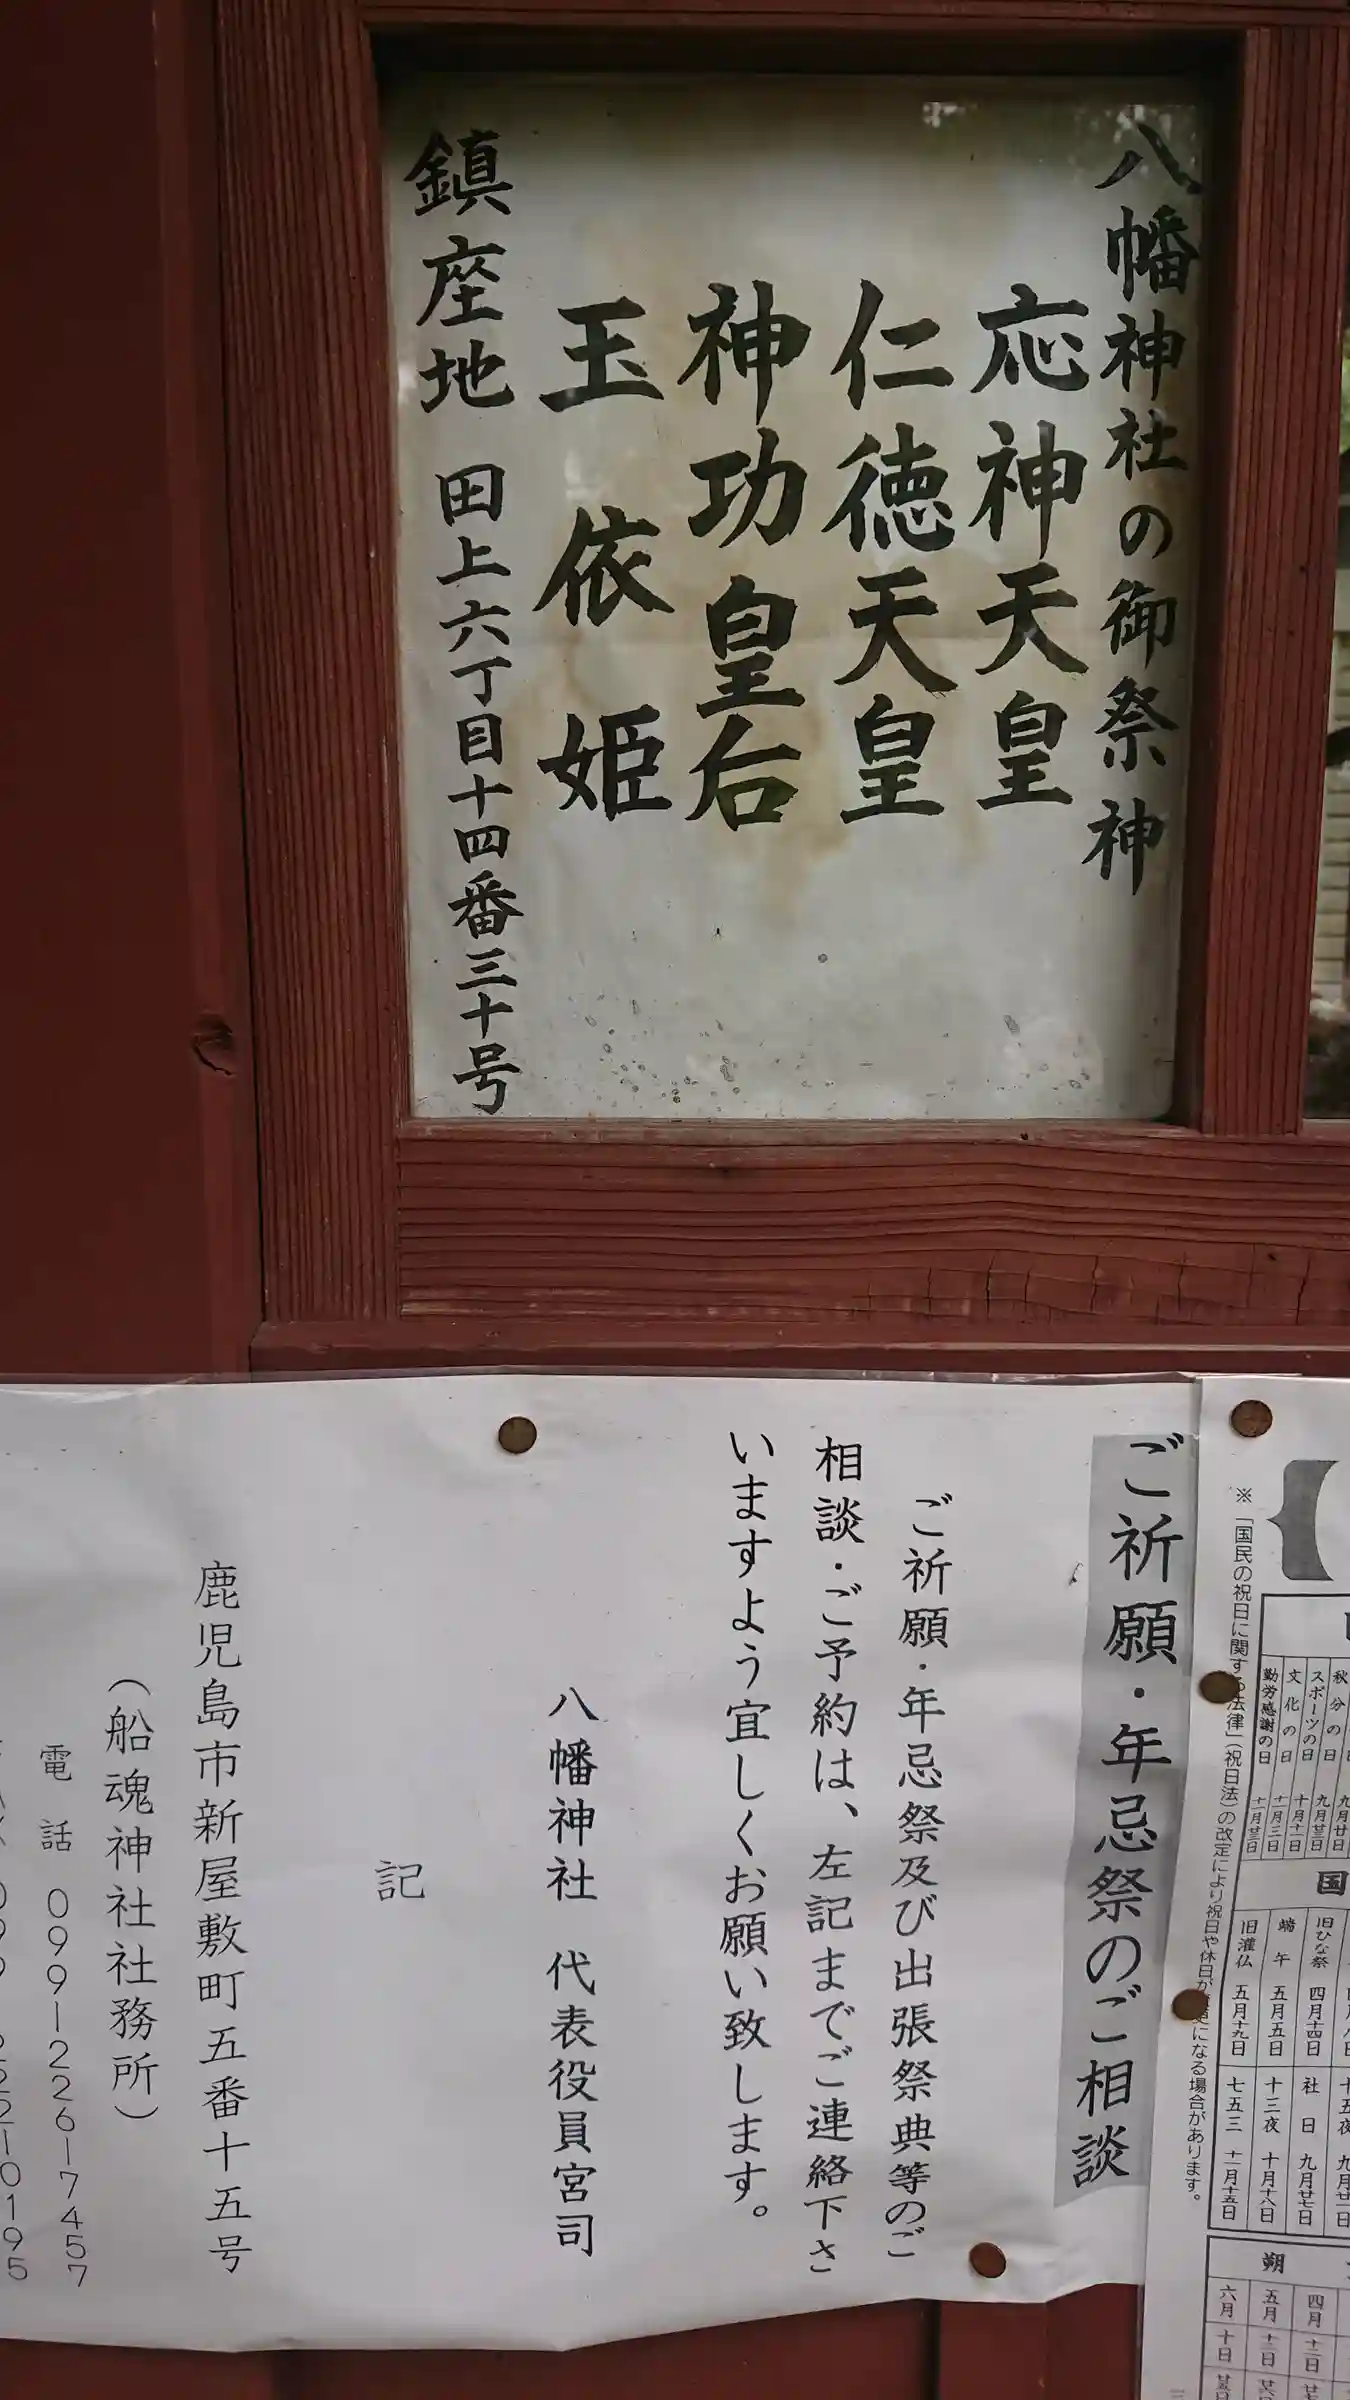 八幡神社の御祭神
応神天皇
仁徳天皇
神功皇后
玉依姫
鎮座地 田上六丁目十四番三十号
※「国民の祝日に関する法律」(祝日法)の改定により祝日や休日が変更になる場合があります。
秋分の日 九月廿三日
スポーツの日 十月十一日
文化の日 十一月三日
勤労感謝の日 十一月廿三日
国
旧ひな祭 四月十四日
端午 五月五日
旧灌仏 五月十九日
社日 九月廿七日
十三夜 十月十八日
七五三 十一月十五日
朔
四月 十二日
五月 十二日
六月 十日
ご祈願・年忌祭のご相談
ご祈願・年忌祭及び出張祭典等のご
相談・ご予約は、左記までご連絡下さ
いますよう宜しくお願い致します。
八幡神社 代表役員宮司
記
鹿児島市新屋敷町五番十五号
(船魂神社社務所)
電話 099-226-7457